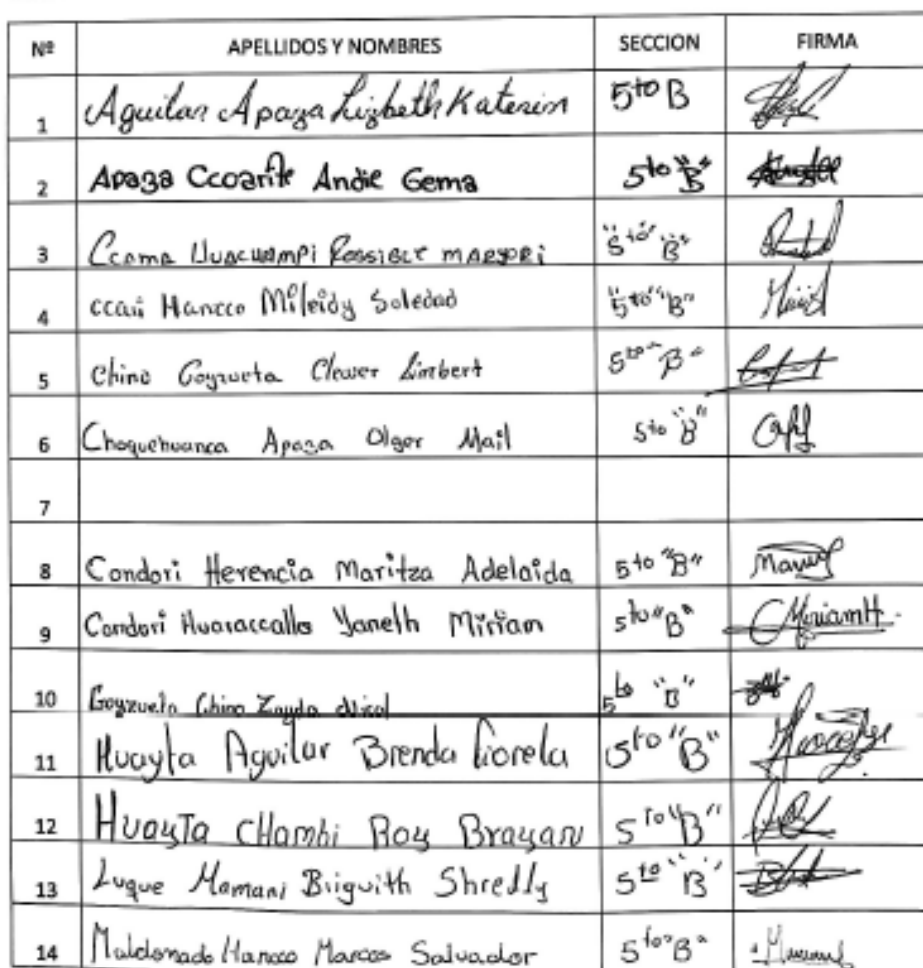 Nº APELLIDOS Y NOMBRES SECCION FIRMA
1 Aguilar Apaza Lizbeth Katerin 5to B
2 Apaza Ccoarite Andie Gema 5to "B"
3 Ccama Huacuampi Rossisct margori "5to" "B"
4 ccari Hancco Mileidy Soledad "5to" "B"
5 Chino Goyzueta Clewer Limbert 5to "B"
6 Choquehuanca Apaza Olger Mail 5to "B"
7
8 Condori Herencia Maritza Adelaida 5to "B"
9 Condori Huaraccallo Yaneth Miriam 5to "B" MiriamH.
10 Goyzueta Chino Zayda Nicol 5to "B"
11 Huayta Aguilar Brenda Fiorela 5to "B"
12 HuaytA CHambi Roy Brayan 5to "B"
13 Luque Mamani Briguith Shredly 5to "B"
14 Maldonado Hancco Marcos Salvador 5to "B"